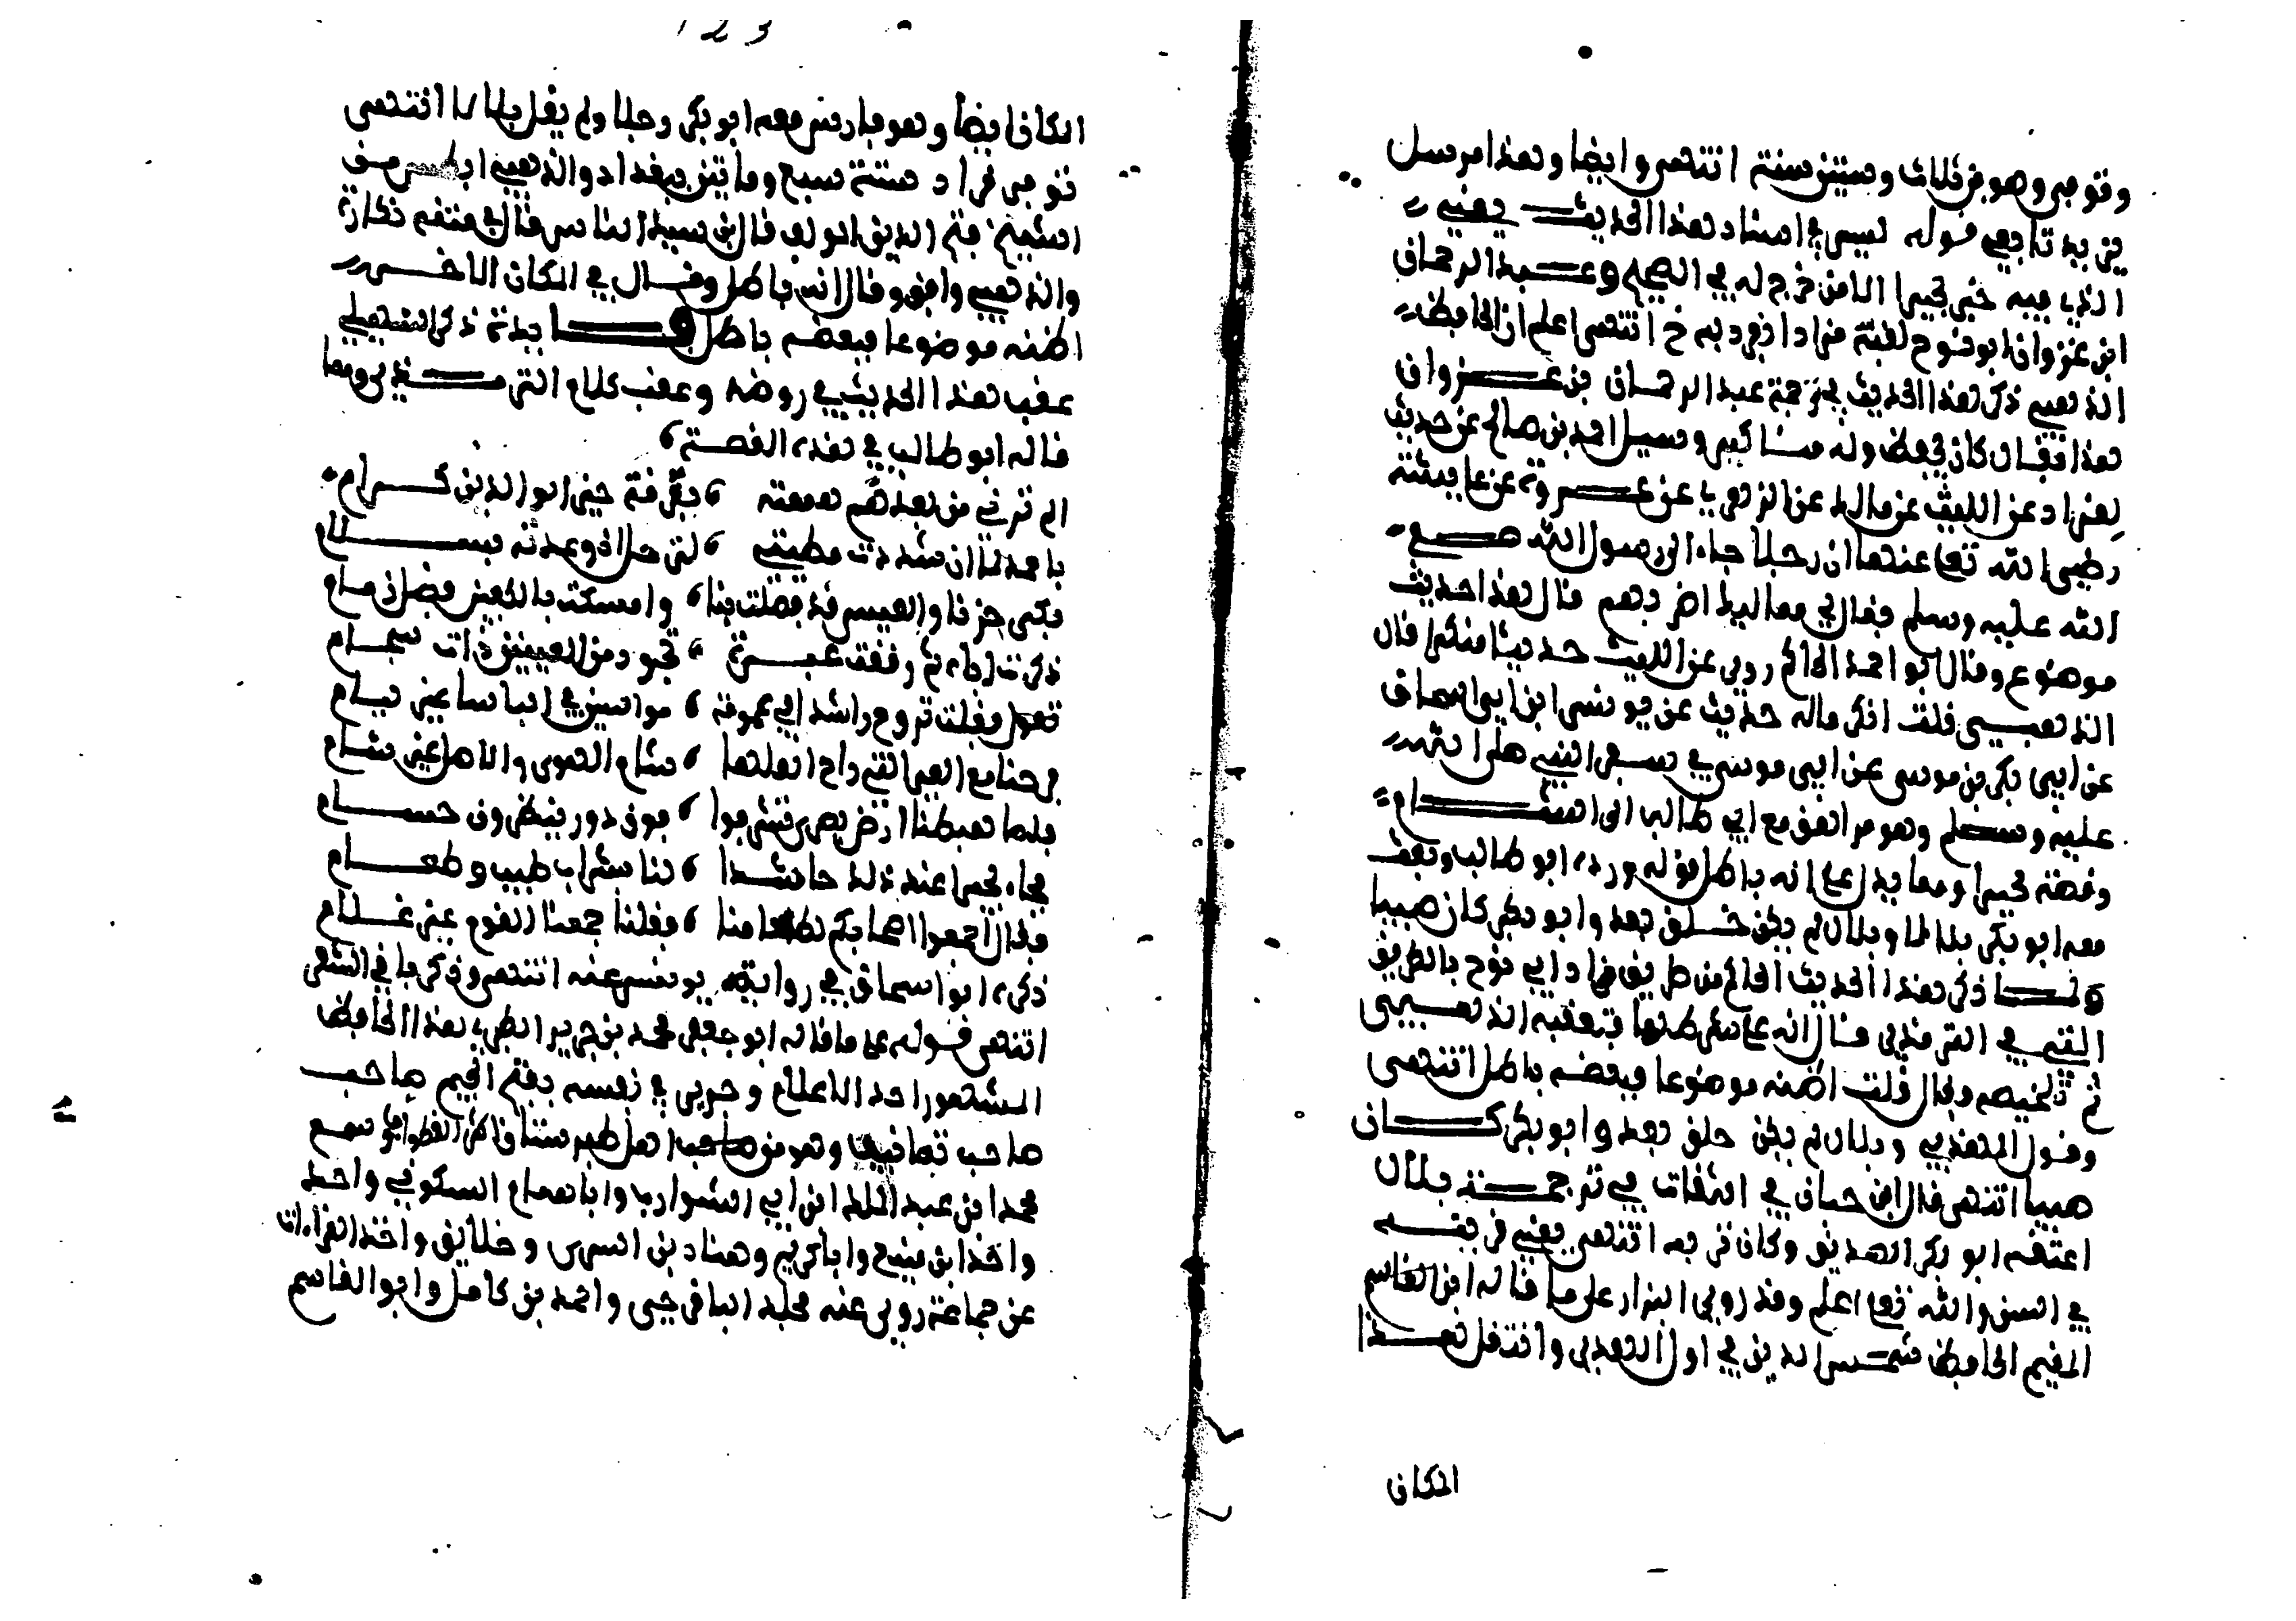 وقوصي وهو من ثلاث وستين سنة انتهى وايضا وهذا مرسل
يزيد تابعي قوله ليس في اسناد هذا الحديث يعني
الذي فيه خبر بحيرا الا من خرج له في الصحيح وعبد الرحمان
ابن غزوان ابو نوح لقبه قراد انفرد به خ انتهى اعلم ان الحافظ
الذهبي ذكر هذا الحديث بترجمة عبد الرحمان بن غزوان
هذا فقال كان يحفظ وله مناكير وسيل احمد بن صالح عن حديث
لقراد عن الليث عن مالك عن الزهري عن عروة عن عايشة
رضي الله تعا عنها ان رجلا جاء الى رسول الله صلى
الله عليه وسلم فقال لي مماليك اضربهم قال هذا حديث
موضوع وقال ابو احمد الحاكم روى عن الليث حديثا منكرا قال
الذهبي قلت انكر ماله حديث عن يونس ابن ابي اسحاق
عن ابي بكر بن موسى عن ابي موسى في سفر النبي صلى الله
عليه وسلم وهو مراهق مع ابي طالب الى الشام
وقصة بحيرا ومما يدل على انه باطل قوله ورده ابو طالب وبعث
معه ابو بكر بلالا وبلال لم يكن خلق بعد وابو بكر كان صبيا
ولما ذكر هذا الحديث الحاكم من طريق قراد ابي نوح بالطريق
التي في الترمذي قال انه على شرطهما فتعقبه الذهبي
في تلخيصه وقال قلت اظنه موضوعا فبعضه باطل انتهى
وقول الذهبي وبلال لم يكن خلق بعد وابو بكر كان
صبيا انتهى قال ابن حبان في الثقات في ترجمة بلال
اعتقه ابو بكر الصديق وكان تربه انتهى يعني قريبه
في السن والله تعا اعلم وقد روى البزار على ما قاله ابن القاسم
القيم الحافظ شمس الدين في اول الهدي وانتقل هذا
المكان
123
المكان ايضا وهو فارسل معه ابو بكر رجلا ولم يقل بلالا انتهى
توفي قراد سنة سبع وماتين ببغداد والذهبي
الشيخ فتح الدين ابو الفتح ابن سيد الناس قال في متنه نكارة
والذهبي وافق وقال انه باطل وقال في المكان الاخر
اظنه موضوعا فبعضه باطل فايدة ذكر السهيلي
عقب هذا الحديث في روضه وعقب كلام الترمذي ومما
قاله ابو طالب في هذه القصة
الم ترني من بعد هم هممته ، بفرقة حر الوالدين كرام
باحمد لما ان شددت مطيتي ، لترحل اذ ودعته بسلام
بكى حزنا والعيس قد فصلت بنا ، وامسكت بالكفين فضل زمام
ذكرت اباه ثم رقرقت عبرة ، تجود من العينين ذات سجام
فقلت تروح راشدا في عمومة ، مواسين في الباسا غير ليام
فرحنا مع العير التي راح اهلها ، شام الهوى والاصل غير شام
فلما هبطنا ارض بصرى تشرفوا ، فوق دور ينظرون جسام
فجاء بحيرا عند ذلك حاشدا ، لنا بشراب طيب وطعام
فقال اجمعوا اصحابكم لطعامنا ، فقلنا جمعنا القوم غير غلام
ذكره ابو اسحاق في رواية يونس عنه انتهى وذكر باقي الشعر
انتهى قوله على ما قاله ابو جعفر محمد بن جرير الطبري هذا الحافظ
المشهور احد الاعلام وجرير في نفسه بفتح الجيم صاحب
صاحب تصانيف وهو من اهل طبرستان اكثر التطواف سمع
محمد ابن عبد الملك ابن ابي الشوارب وابا همام السكوني واحمد
واخذ ابن منيع وابا كريب وهناد بن السري وخلايق واخذ القراءات
عن جماعة روى عنه مخلد الباقرحي واحمد بن كامل وابو القاسم